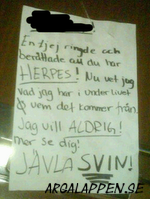 En tjej ringde och
berättade att du har
HERPES! Nu vet jag
vad jag har i underlivet
& vem det kommer från.
Jag vill ALDRIG!
mer se dig!
JÄVLA SVIN!
ARGALAPPEN.SE